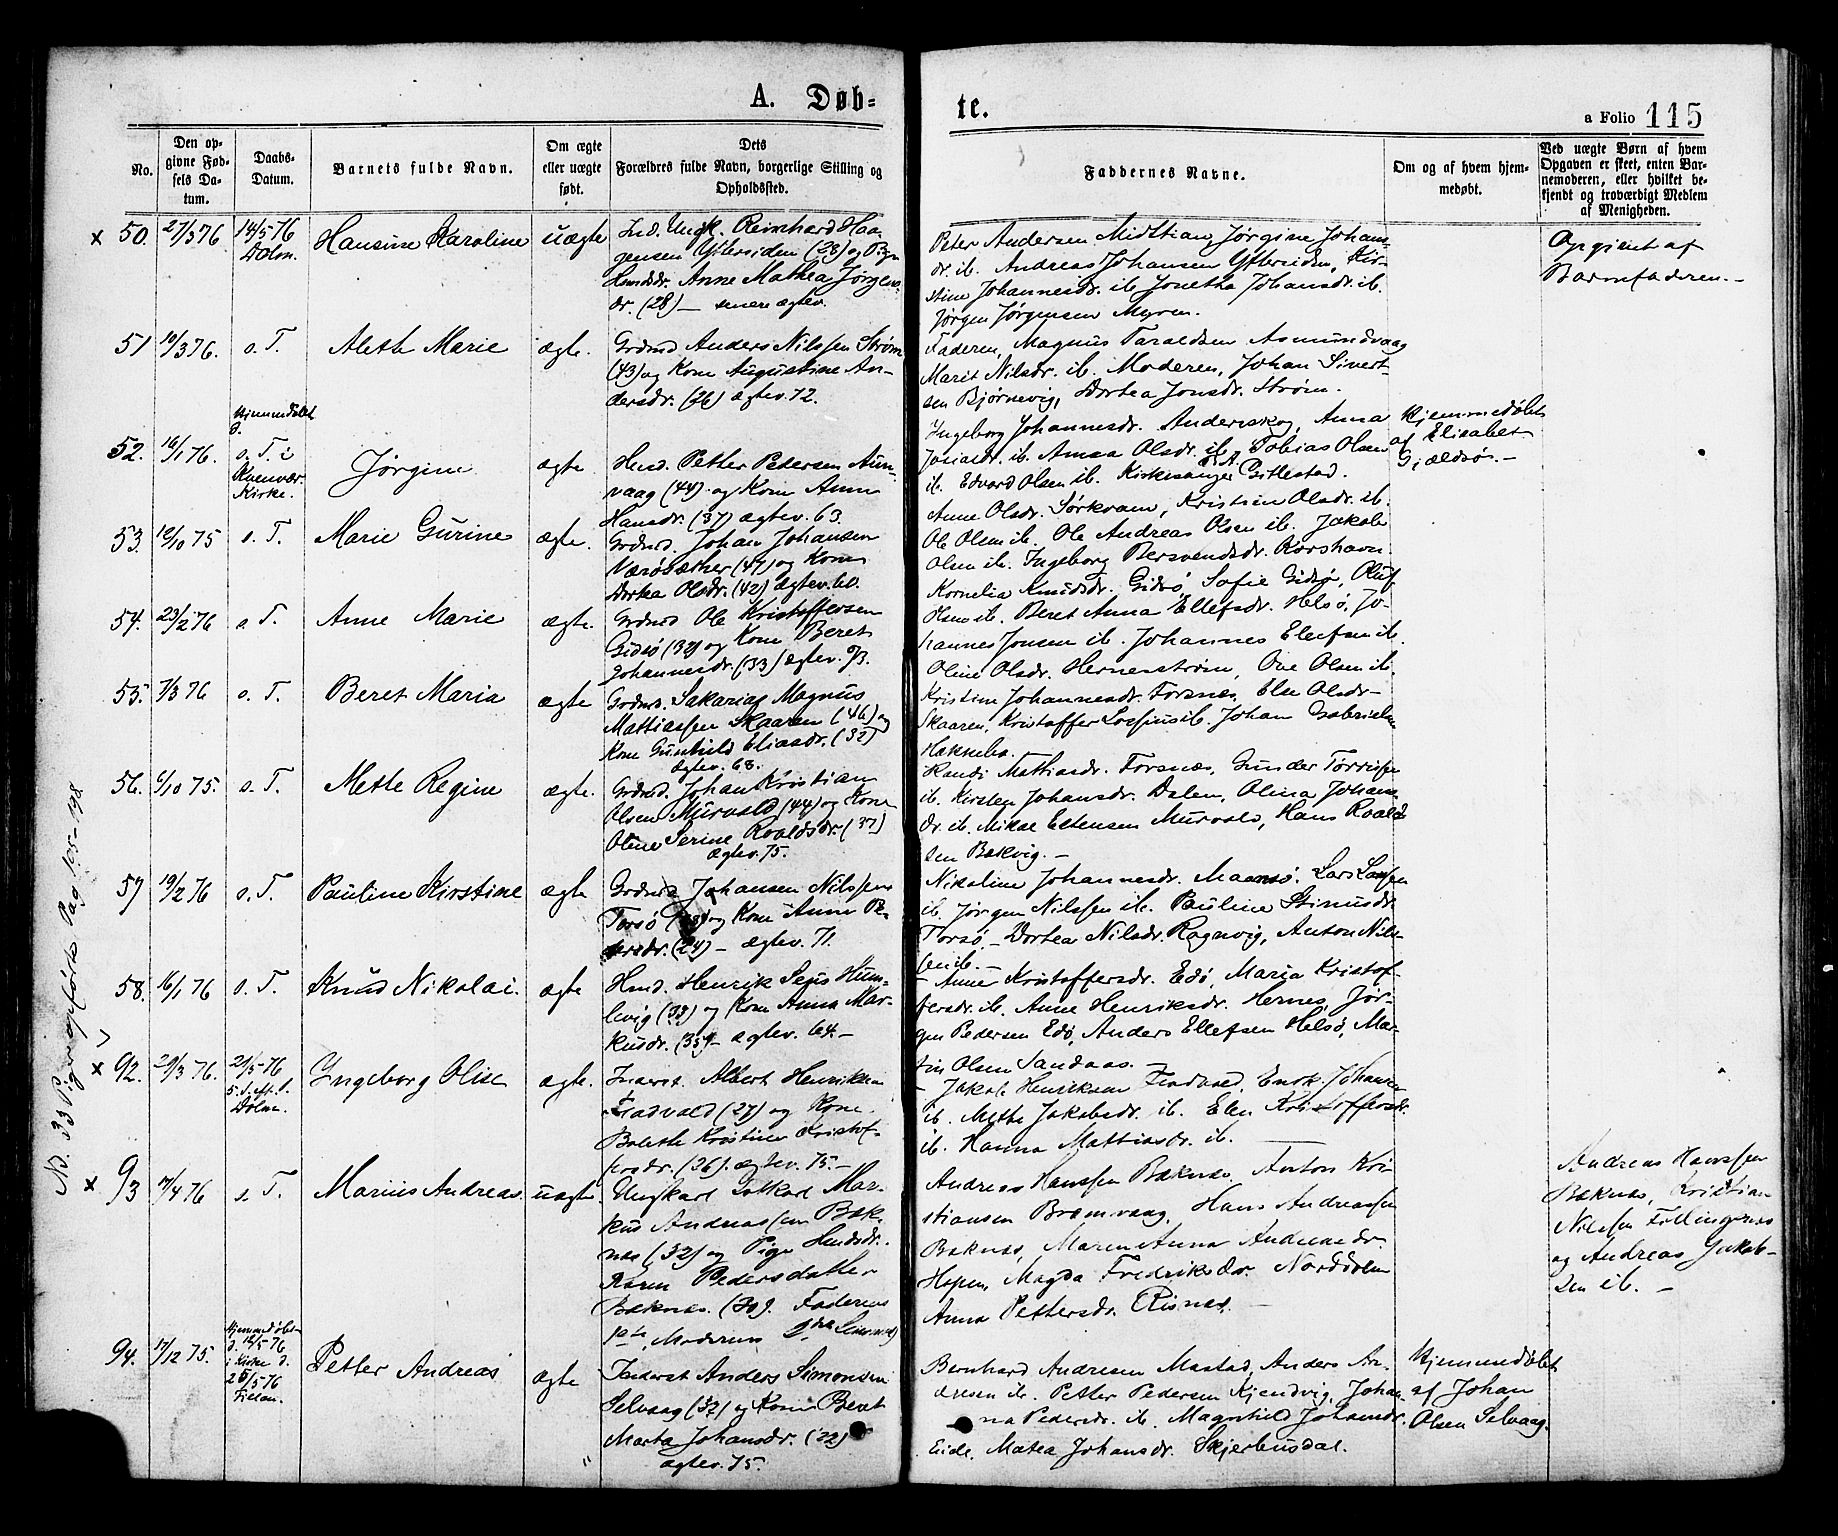 A. Døb-
te.
a Folio 115
No.
Den op-
givne Fød-
sels Da-
tum.
Daabs-
Datum.
Barnets fulde Navn.
Om ægte
eller uægte
født.
Dets
Forældres fulde Navn, borgerlige Stilling og
Opholdssted.
Faddernes Navne.
Om og af hvem hjem-
medøbt.
Ved uægte Børn af hvem
Opgaven er skeet, enten Bar-
nemoderen, eller hvilket be-
kjendt og troværdigt Medlem
af Menigheden.
x 50.
27/3 76
14/5 76
Dolm.
Hansine Karoline
uægte
Ind. Ungk. Reinhard Haa-
gensen Yttersiden (23) og Pige
Anne Mathea Jørgens-
dr. (28) — senere ægtev.
Peter Andersen Midtian, Jørgine Johans-
dr. ib. Andreas Johansen Yttersiden, Kir-
stine Johannesdr. ib. Jonetha Johansdr. ib.
Jørgen Jørgensen Myren.
Opgivet af
Barnefaderen.—
51
19/3 76.
s. T.
Aleth Marie
ægte.
Grdmd Anders Nilssen Strøm
(43) og Kone Augustine An-
dersdr. (26) ægtev. 72.
Faderen, Magnus Taraldsen Asmundvaag
Marit Nilsdr. ib. Moderen, Johan Sivert-
sen Bjørnevig, Dortea Jonsdr. Strøm.
52.
16/1 76.
Hjemmedøbt
d.
s. T. i
Kvenvær
Kirke.
Jørgine
ægte
Hmd. Petter Petersen Aun-
vaag (44) og Kone Anne
Hansdr. (37) ægtev. 63.
Ingeborg Johannesdr. Anderskog, Anna
Jonasdr. ib. Anna Olsdr. ib. Tobias Olsen
ib. Edvard Olsen ib. Kirkesanger Gittestad.
Hjemmedøbt
af Elisabet
Gjældsø.—
53.
10/10 75
s. T.
Marie Gurine
ægte.
Grdmd. Johan Johansen
Værøsæther (47) og Kone
Dortea Olsdr. (42) ægtev. 60.
Anne Olsdr. Sørkvam, Kristine Olsdr. ib.
Ole Olsen ib. Ole Andreas Olsen ib. Jakob
Olsen ib. Ingeborg Bersvendsdr. Korshavn.
54.
23/2 76
s. T.
Anne Marie
ægte.
Grdmd Ole Kristoffersen
Gidsø (32) og Kone Beret
Johannesdr. (33) ægtev. 73.
Kornelia Knudsdr. Gidsø, Sofie Gidsø, Oluf
Olsen ib. Beret Anna Ellefsdr. Helsø, Jo-
hannes Jonsen ib. Johannes Ellefsen ib.
55.
7/3 76
s. T.
Beret Maria
ægte
Grdmd. Sakarias Magnus
Mattiassen Skaaren (46) og
Kone Gunhild Eliasdr. (32)
ægtev. 68.
Oline Olsdr. Hernesstrøm, Ove Olsen ib.
Kristine Johannesdr. Forsnes, Else Olsdr.
Skaaren, Kristoffer ib. Johan Gabrielsen
Hakneba.
56.
6/10 75.
s. T.
Mette Regine
ægte.
Grdmd. Johan Kristian
Olsen Murvold (44) og Kone
Oline Serine Roaldsdr. (37)
ægtev. 75.
Randi Mathiasdr. Forsnæs, Gunder Tørrisen
ib. Kirsten Johansdr. Dalen, Olina Johans-
dr. ib. Mikal Estensen Murvold, Hans Roald-
sen Bækvig.—
57
19/2 76
s. T.
Pauline Kirstine
ægte
Grdmd Johansen Nilssen
Torsø og Kone Anne Pe-
dersdr. (24) — ægtev. 71.
Nikoline Johannesdr. Maansø. Lars Larsen
ib. Jørgen Nilssen ib. Pauline
Torsø.— Dortea Nilsdr. Ragnvig, Anton Nils-
sen ib.—
58.
16/1 76
s. T.
Knud Nikolai.
ægte
Hmd. Henrik Hum-
levig (33) og Kone Anna Mar-
kusdr. (35) — ægtev. 64.—
— Anne Kristoffersdr. Edø, Maria Kristof-
fersdr. ib. Anne Henriksdr. Hernes, Jør-
gen Pedersen Edø, Anders Ellefsen Helsø, Mar-
tin Olsen Sandaas.—
x 92.
29/3 76.
21/5 76
Dolm.
Ingeborg Olise
ægte.
Inderst. Albert Henriksen
Fradvold (27) og Kone
Boleth Kristine Kristof-
fersdr. (26) ægtev. 75.—
— Jakob Henriksen Fradvold, Enok Johansen
ib. Mette Jakobsdr. ib. Elen Kristoffersdr.
ib. Hanna Mattiasdr. ib.
x 93
17/4 76
s. T.
Marius Andreas
uægte.
Ungkarl Mar-
kus Andreassen Bæk-
næs (32) og Pige
Karen Pedersdatter
Bæknæs. (30). Faderens
1ste, Moderens 2det
Andreas Hanssen Bæknæs. Anton Kri-
stiansen Bremvaag, Hans Andreassen
Bæknæs, Maren Anna Andreasdr.
Hopen, Magda Fredriksdr. Norddolm
Anna Pettersdr. Risnes.—
Andreas Hanssen
Bæknæs, Kristian
Nilssen Fillingsnes
og Andreas Jakob-
sen ib. —
94.
17/12 75.
Hjemmedøbt
d. 12/5 76
i Kirke d.
25/5 76
Fillan.
Petter Andreas
ægte
Inderst Anders Simonsen
Selvaag (32) og Kone Beret
Marta Johansdr. (22)
ægtev. 75.
Bernhard Andresen Mastad, Anders An-
dresen ib. Petter Pedersen Kjendvig, Johan-
na Pedersdr. ib. Magnhild Johansdr.
Eide, Matea Johansdr. Skjerbusdal.
Hjemmedøbt
af Johan
Olsen Selvaag.
NB. 33 Pigeropførte Pag. 105-198